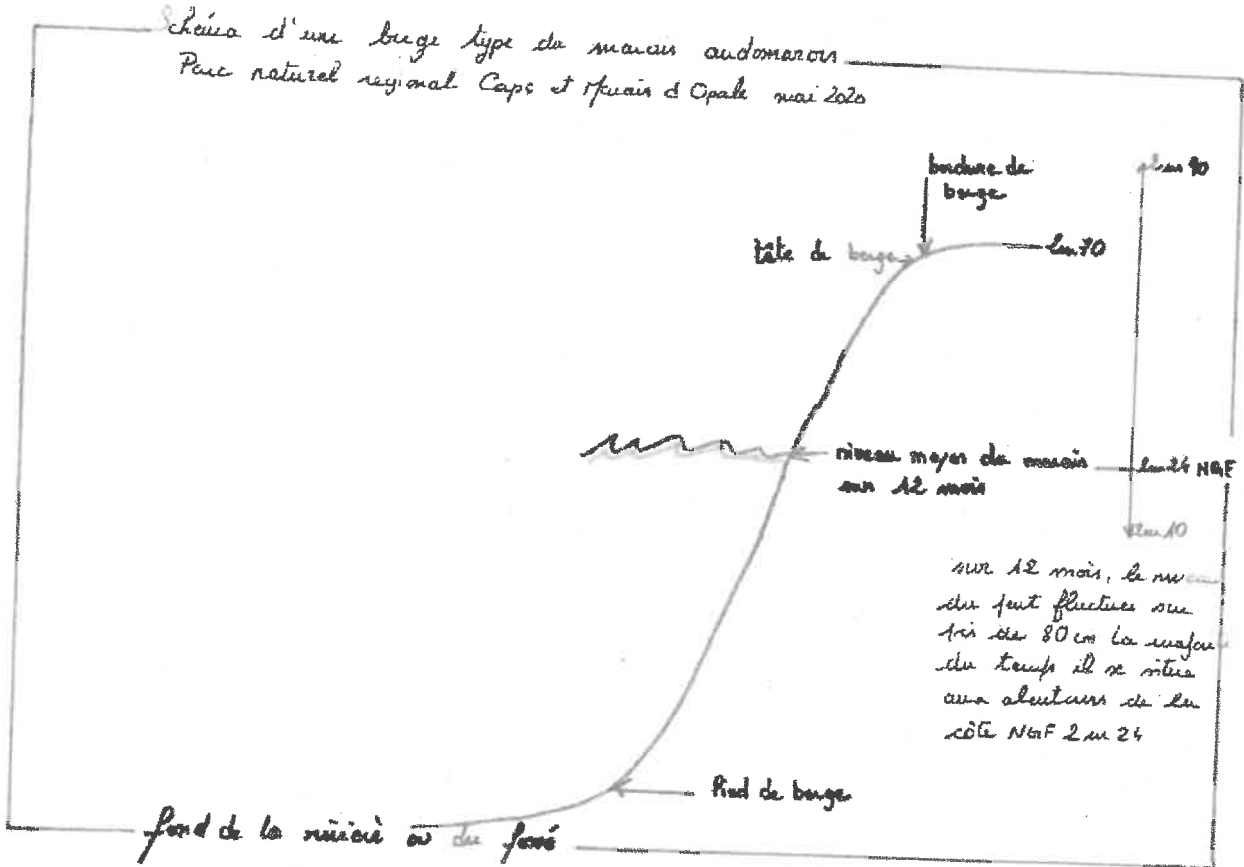 Schéma d'une berge type du marais audomarois
Parc naturel regional Caps et Marais d Opale mai 2020
bordure de
berge
2m 90
tête de berge
2m 70
niveau moyen du marais
sur 12 mois
2m 24 NGF
2m 10
sur 12 mois, le
peut fluctuer sur
de 80 cm La
du temps il se situe
aux alentours de la
côte NGF 2m 24
Pied de berge
fond de la rivière ou du fossé